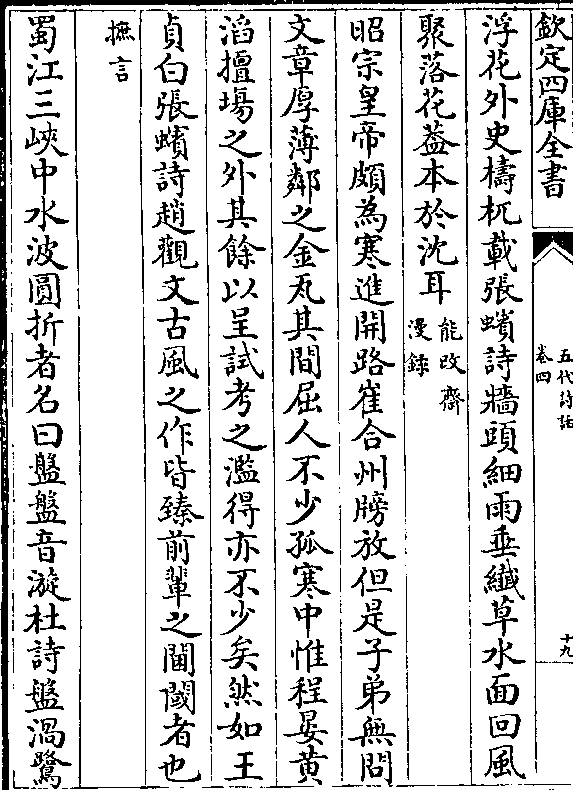 欽定四庫全書
五代詩話
卷四
十九
浮花外史檮杌載張蠙詩牆頭細雨垂纖草水面回風
聚落花葢本於沈耳能改齋漫錄
昭宗皇帝頗為寒進開路崔合州牓放但是子弟無問
文章厚薄鄰之金瓦其間屈人不少孤寒中惟程晏黄
滔擅塲之外其餘以呈試考之濫得亦不少矣然如王
貞白張蠙詩趙觀文古風之作皆臻前輩之閫閾者也
摭言
蜀江三峽中水波圓折者名曰盤盤音漩杜詩盤渦鷺